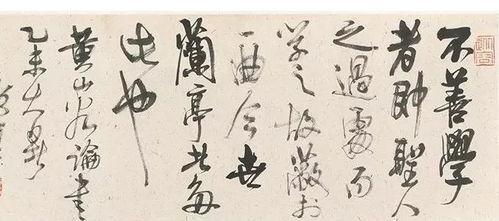 不善學
者即聖人
之過處而
學之故蔽於
一曲今世
蘭亭者多
此也
黄山谷論書
乙未大暑